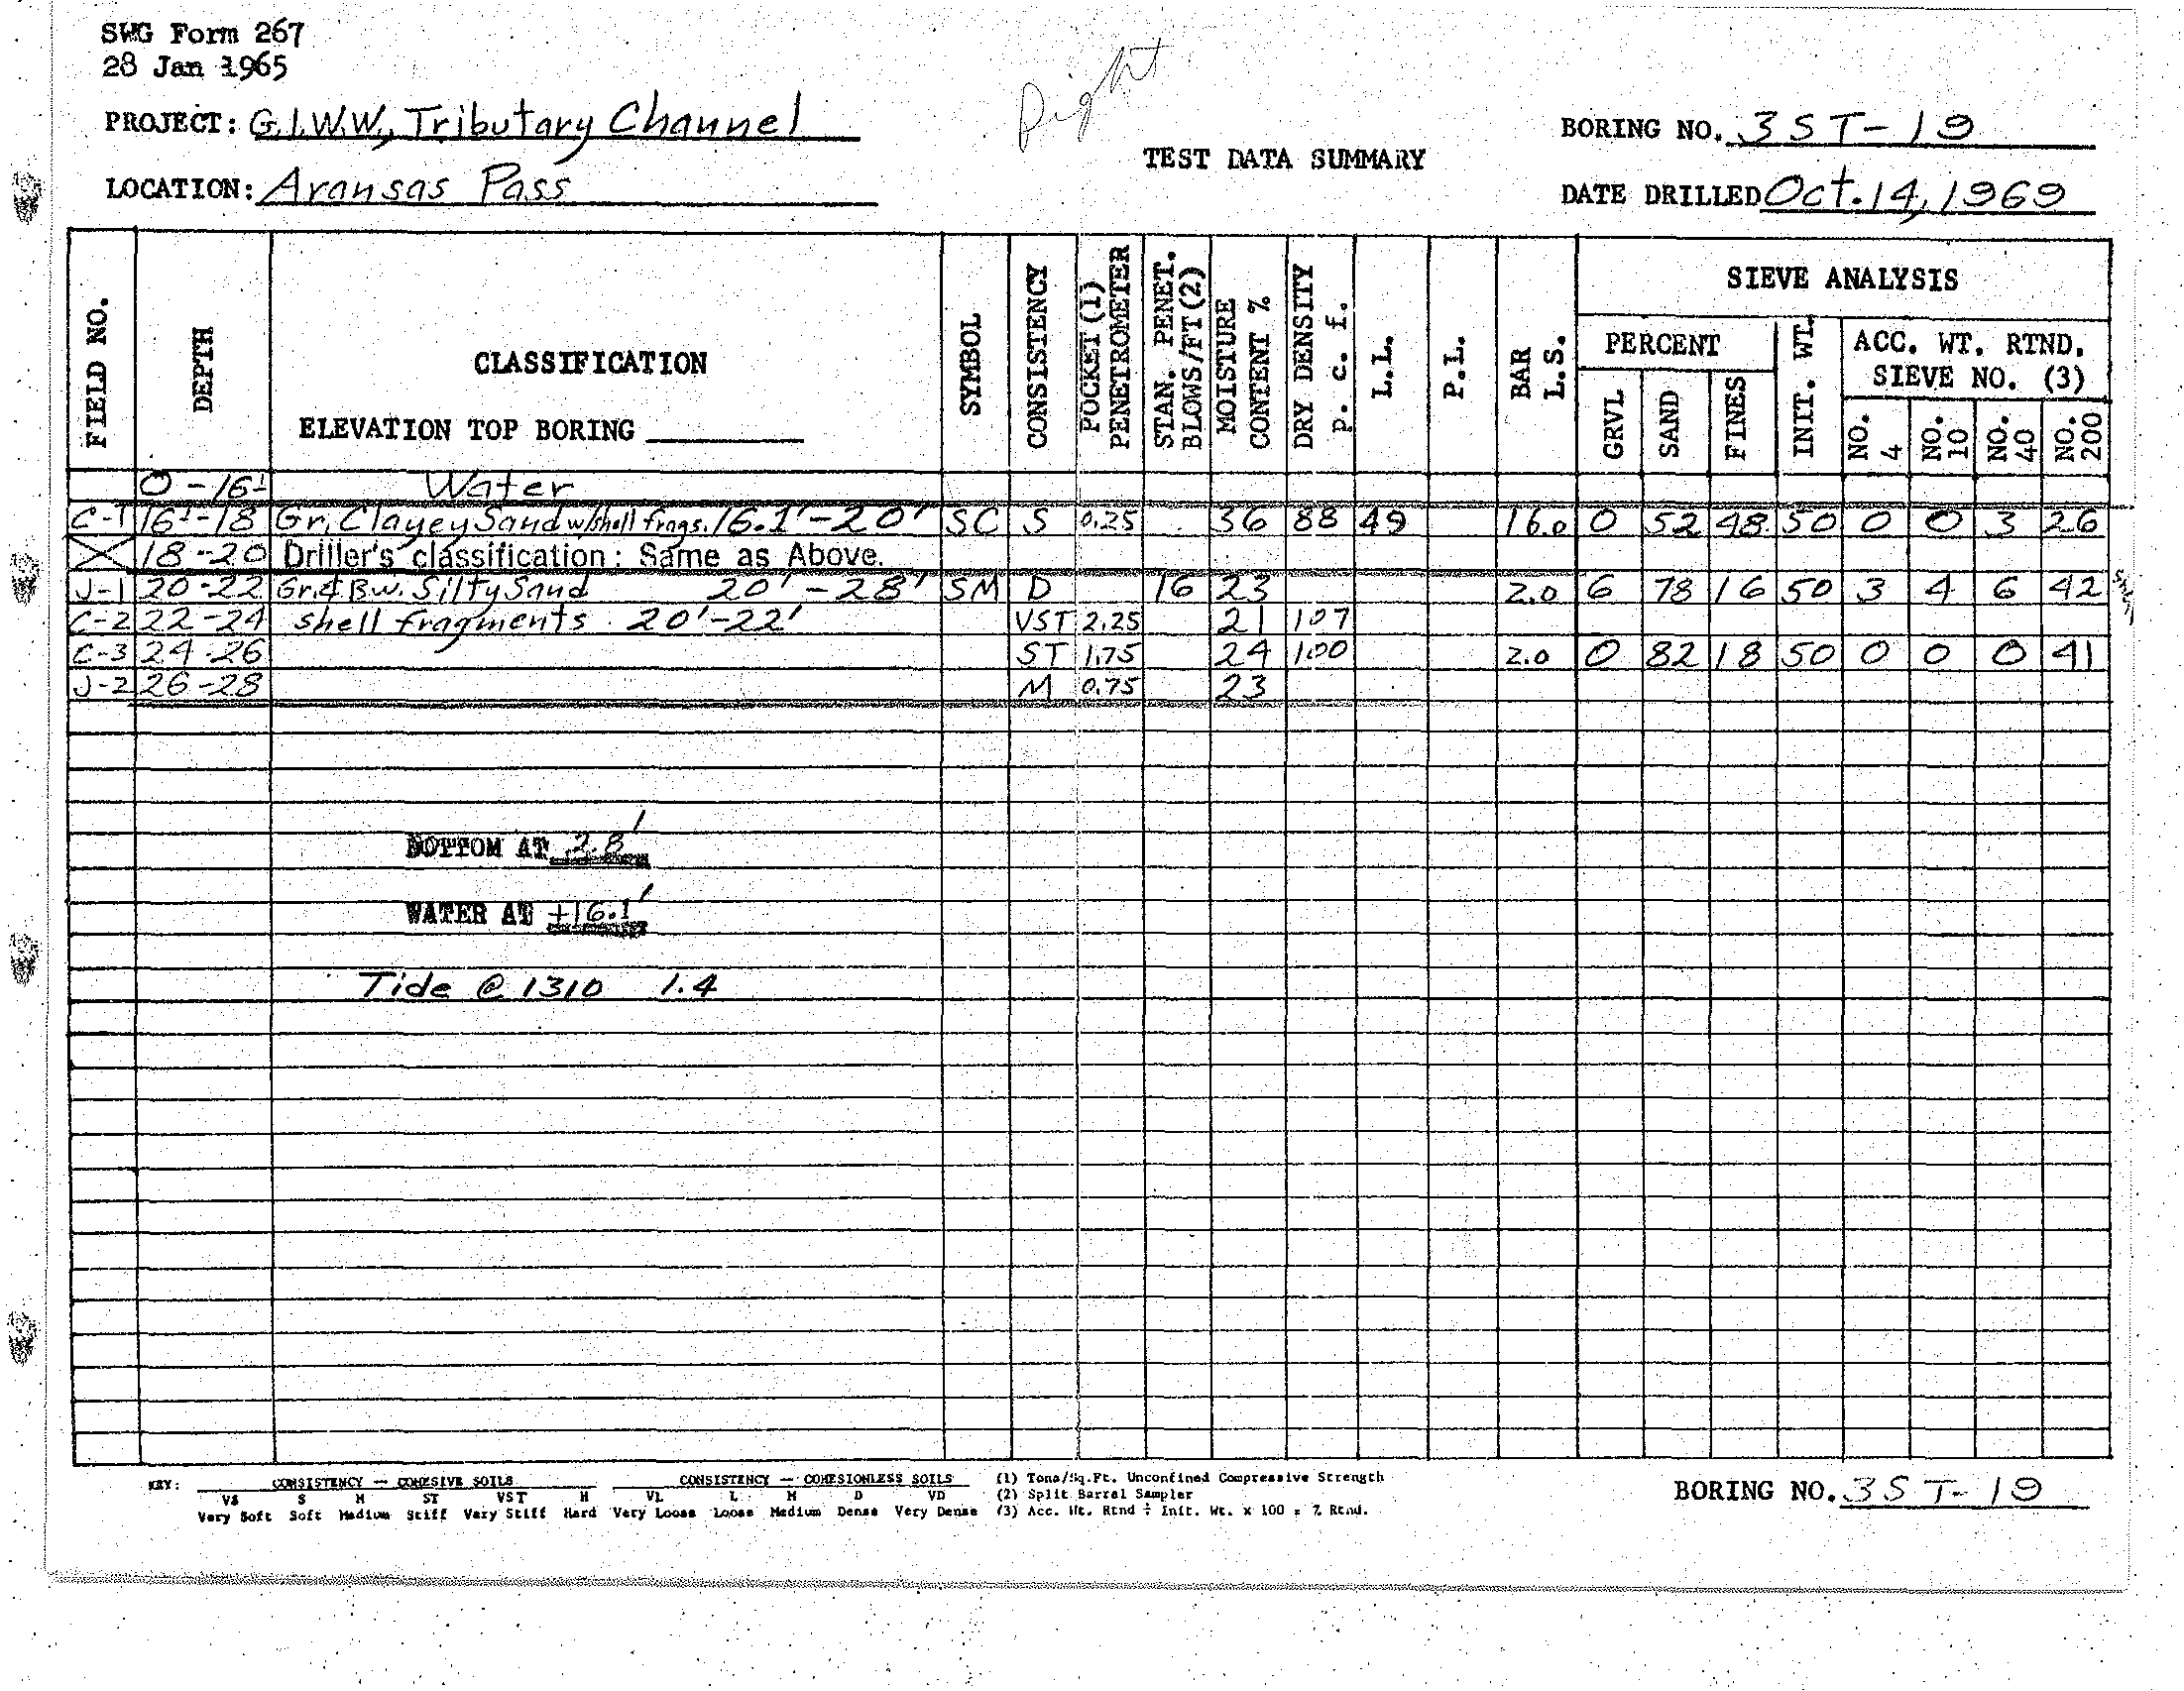 SWG Form 267
28 Jan 1965
Right
PROJECT: G.I.W.W., Tributary Channel
BORING NO. 3ST-19
TEST DATA SUMMARY
LOCATION: Aransas Pass
DATE DRILLED Oct. 14, 1969
FIELD NO. DEPTH CLASSIFICATION SYMBOL CONSISTENCY POCKET (1) PENETROMETER STAN. PENET. BLOWS/FT (2) MOISTURE CONTENT % DRY DENSITY p. c. f. L.L. P.L. BAR L.S. SIEVE ANALYSIS
PERCENT INIT. WT. ACC. WT. RTND. SIEVE NO. (3)
ELEVATION TOP BORING
GRVL SAND FINES NO. 4 NO. 10 NO. 40 NO. 200
0-16¹ Water
C-1 16¹-18 Gr. Clayey Sand w/shell frags. 16.1'-20' SC S 0.25 36 88 49 16.0 0 52 48 50 0 0 3 26
18-20 Driller's classification: Same as Above.
J-1 20-22 Gr.& Bw. Silty Sand 20'-28' SM D 16 23 2.0 6 78 16 50 3 4 6 42
C-2 22-24 shell fragments 20'-22' VST 2.25 21 107
C-3 24-26 ST 1.75 24 100 2.0 0 82 18 50 0 0 0 41
J-2 26-28 M 0.75 23
BOTTOM AT 28'
WATER AT +16.1'
Tide @ 1310 1.4
KEY: CONSISTENCY — COHESIVE SOILS CONSISTENCY — COHESIONLESS SOILS (1) Tons/Sq.Ft. Unconfined Compressive Strength
VS S M ST VST H VL L M D VD (2) Split Barrel Sampler
Very Soft Soft Medium Stiff Very Stiff Hard Very Loose Loose Medium Dense Very Dense (3) Acc. Wt. Rtnd ÷ Init. Wt. x 100 = % Rtnd.
BORING NO. 3ST-19